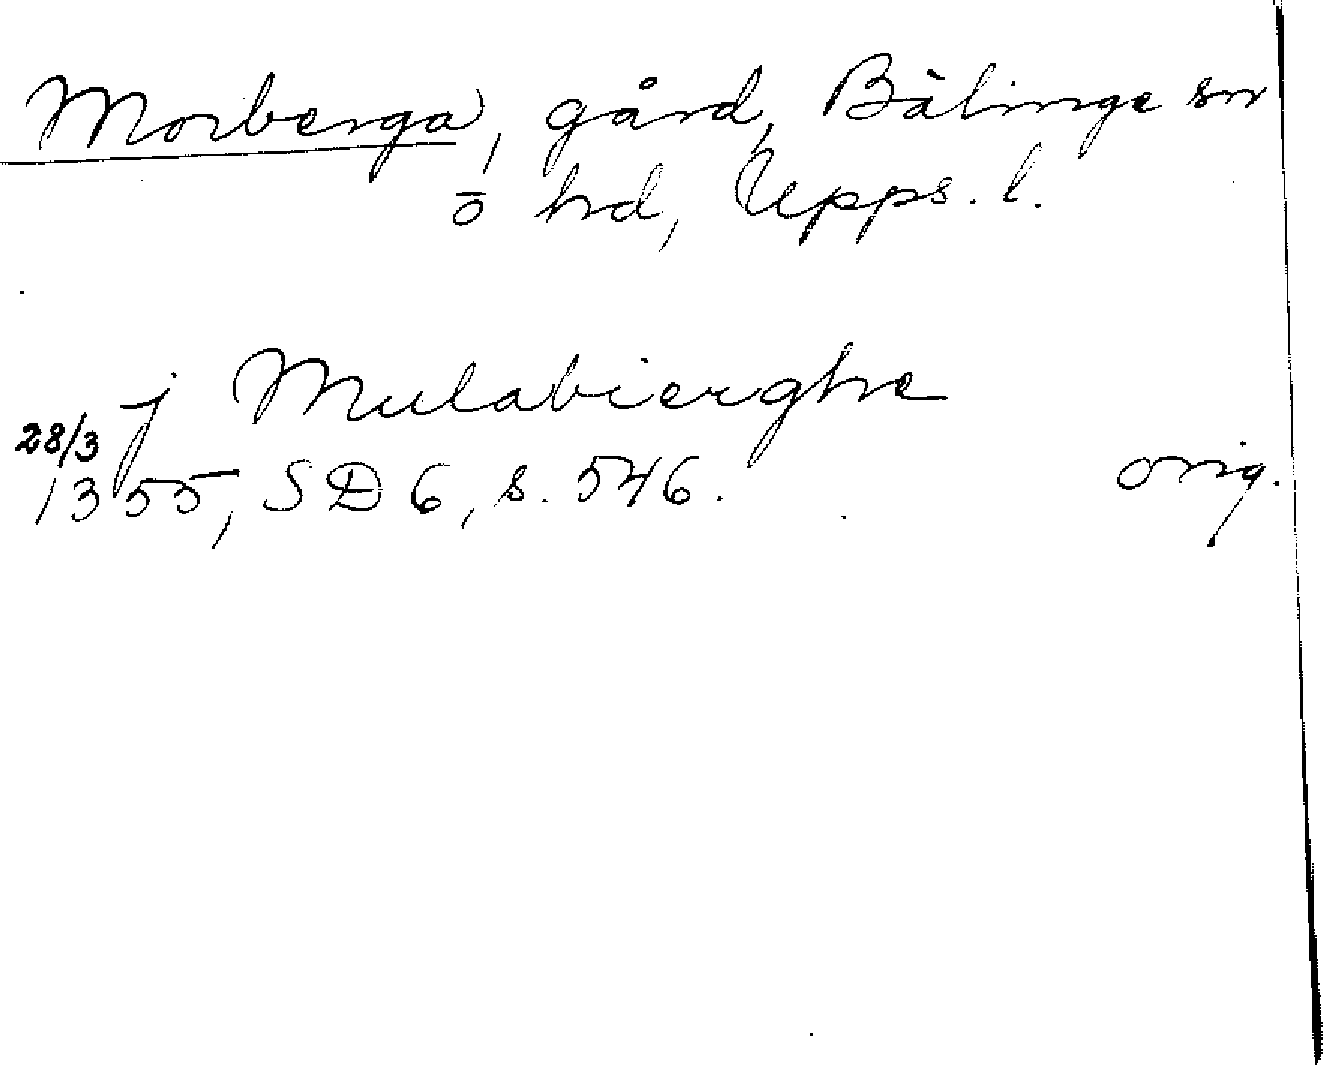 Morberga, gård, Bälinge sn
ō hd, Upps. l.
j Mulabierghe
28/3
1355, SD 6, s. 546. orig.